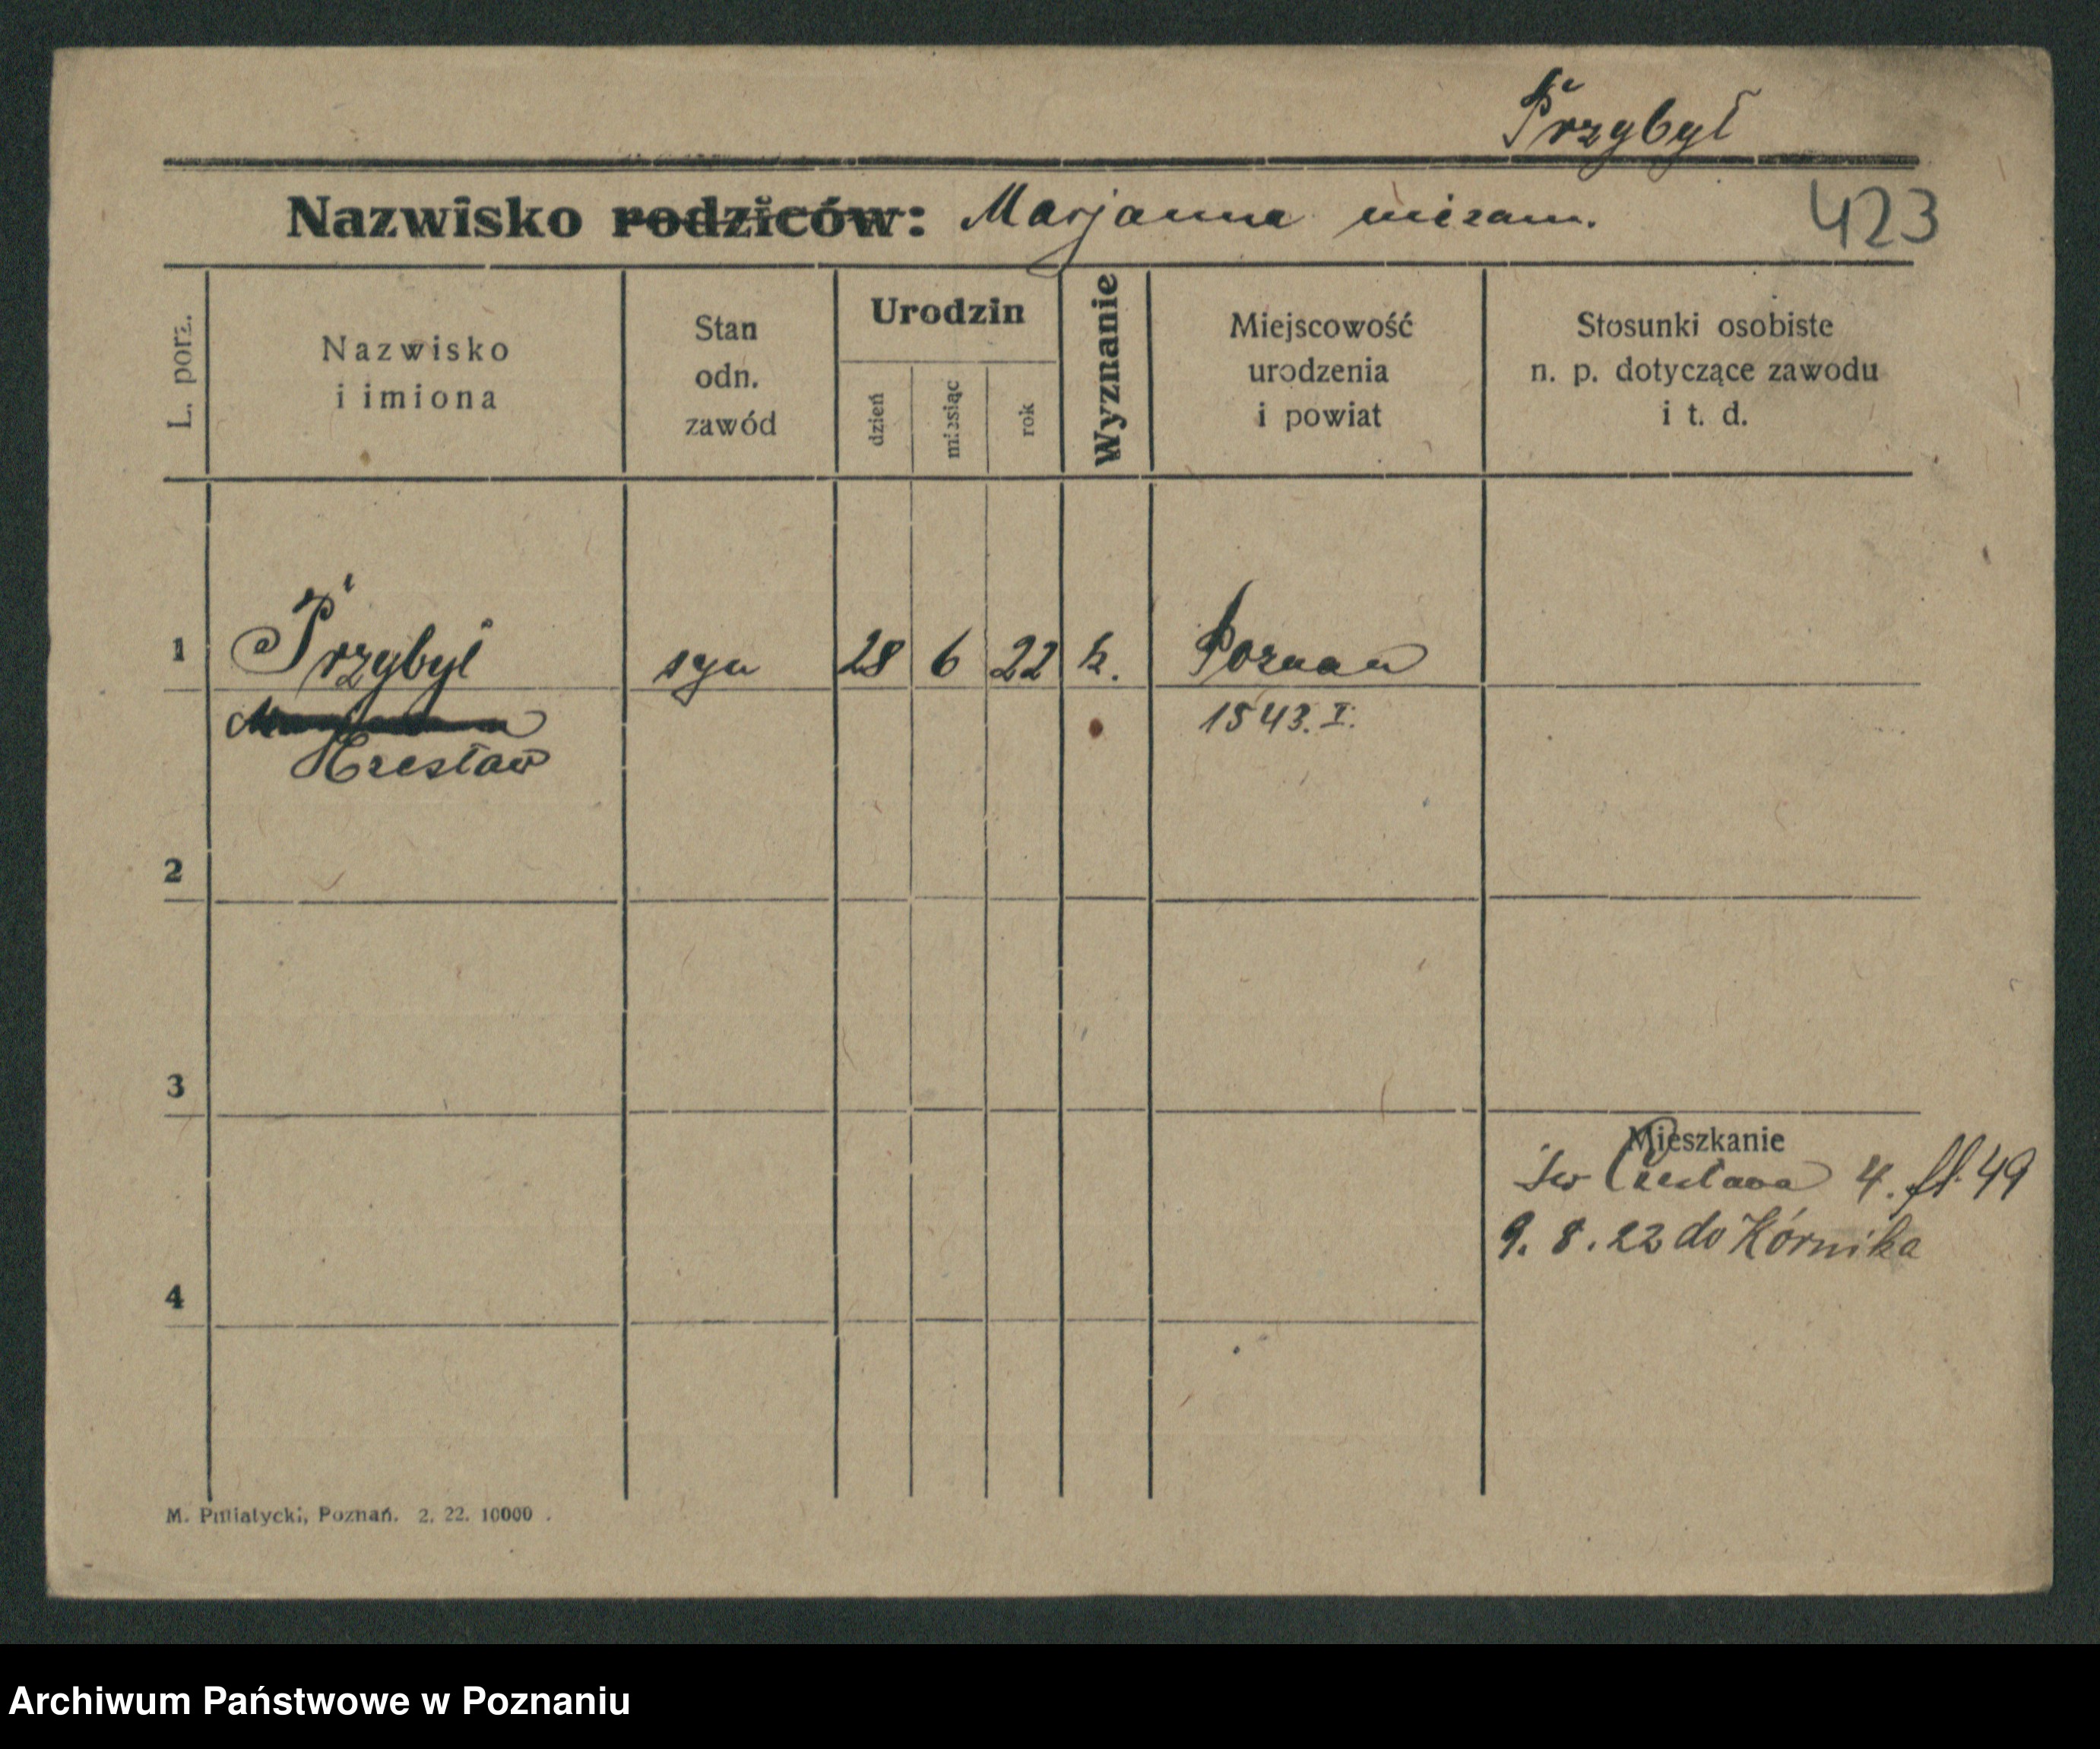 Przybył
Nazwisko rodziców: Marjanna niezam. 423
L. porz.
Nazwisko
i imiona
Stan
odn.
zawód
Urodzin
dzień
miesiąc
rok
Wyznanie
Miejscowość
urodzenia
i powiat
Stosunki osobiste
n. p. dotyczące zawodu
i t. d.
1 Przybył syn 28 6 22 k. Poznań
1543. I.
Czesław
2
3
Mieszkanie
św Czesława 4. 49
9. 8. 22 do Kórnika
4
M. Putiatycki, Poznań. 2. 22. 10000
Archiwum Państwowe w Poznaniu